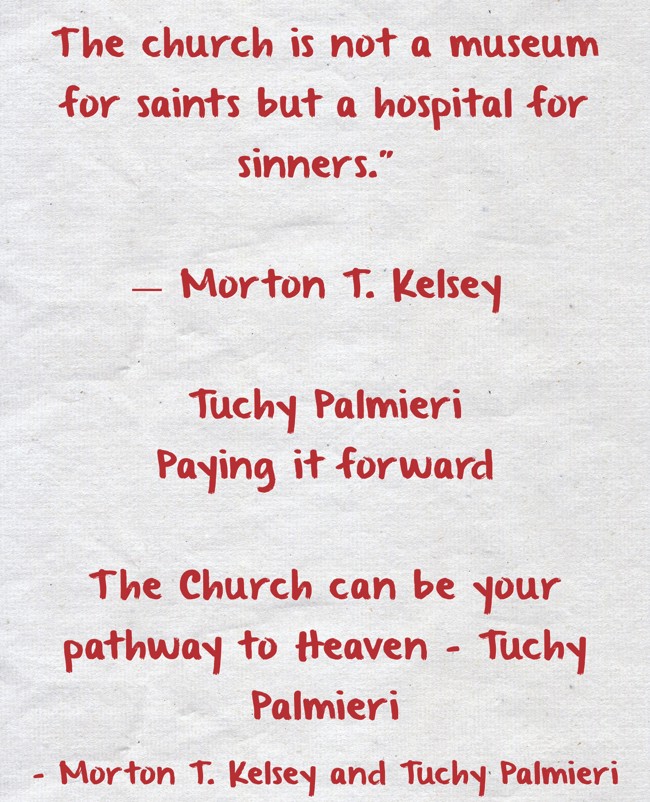 The church is not a museum
for saints but a hospital for
sinners.”
— Morton T. Kelsey
Tuchy Palmieri
Paying it forward
The Church can be your
pathway to Heaven - Tuchy
Palmieri
- Morton T. Kelsey and Tuchy Palmieri